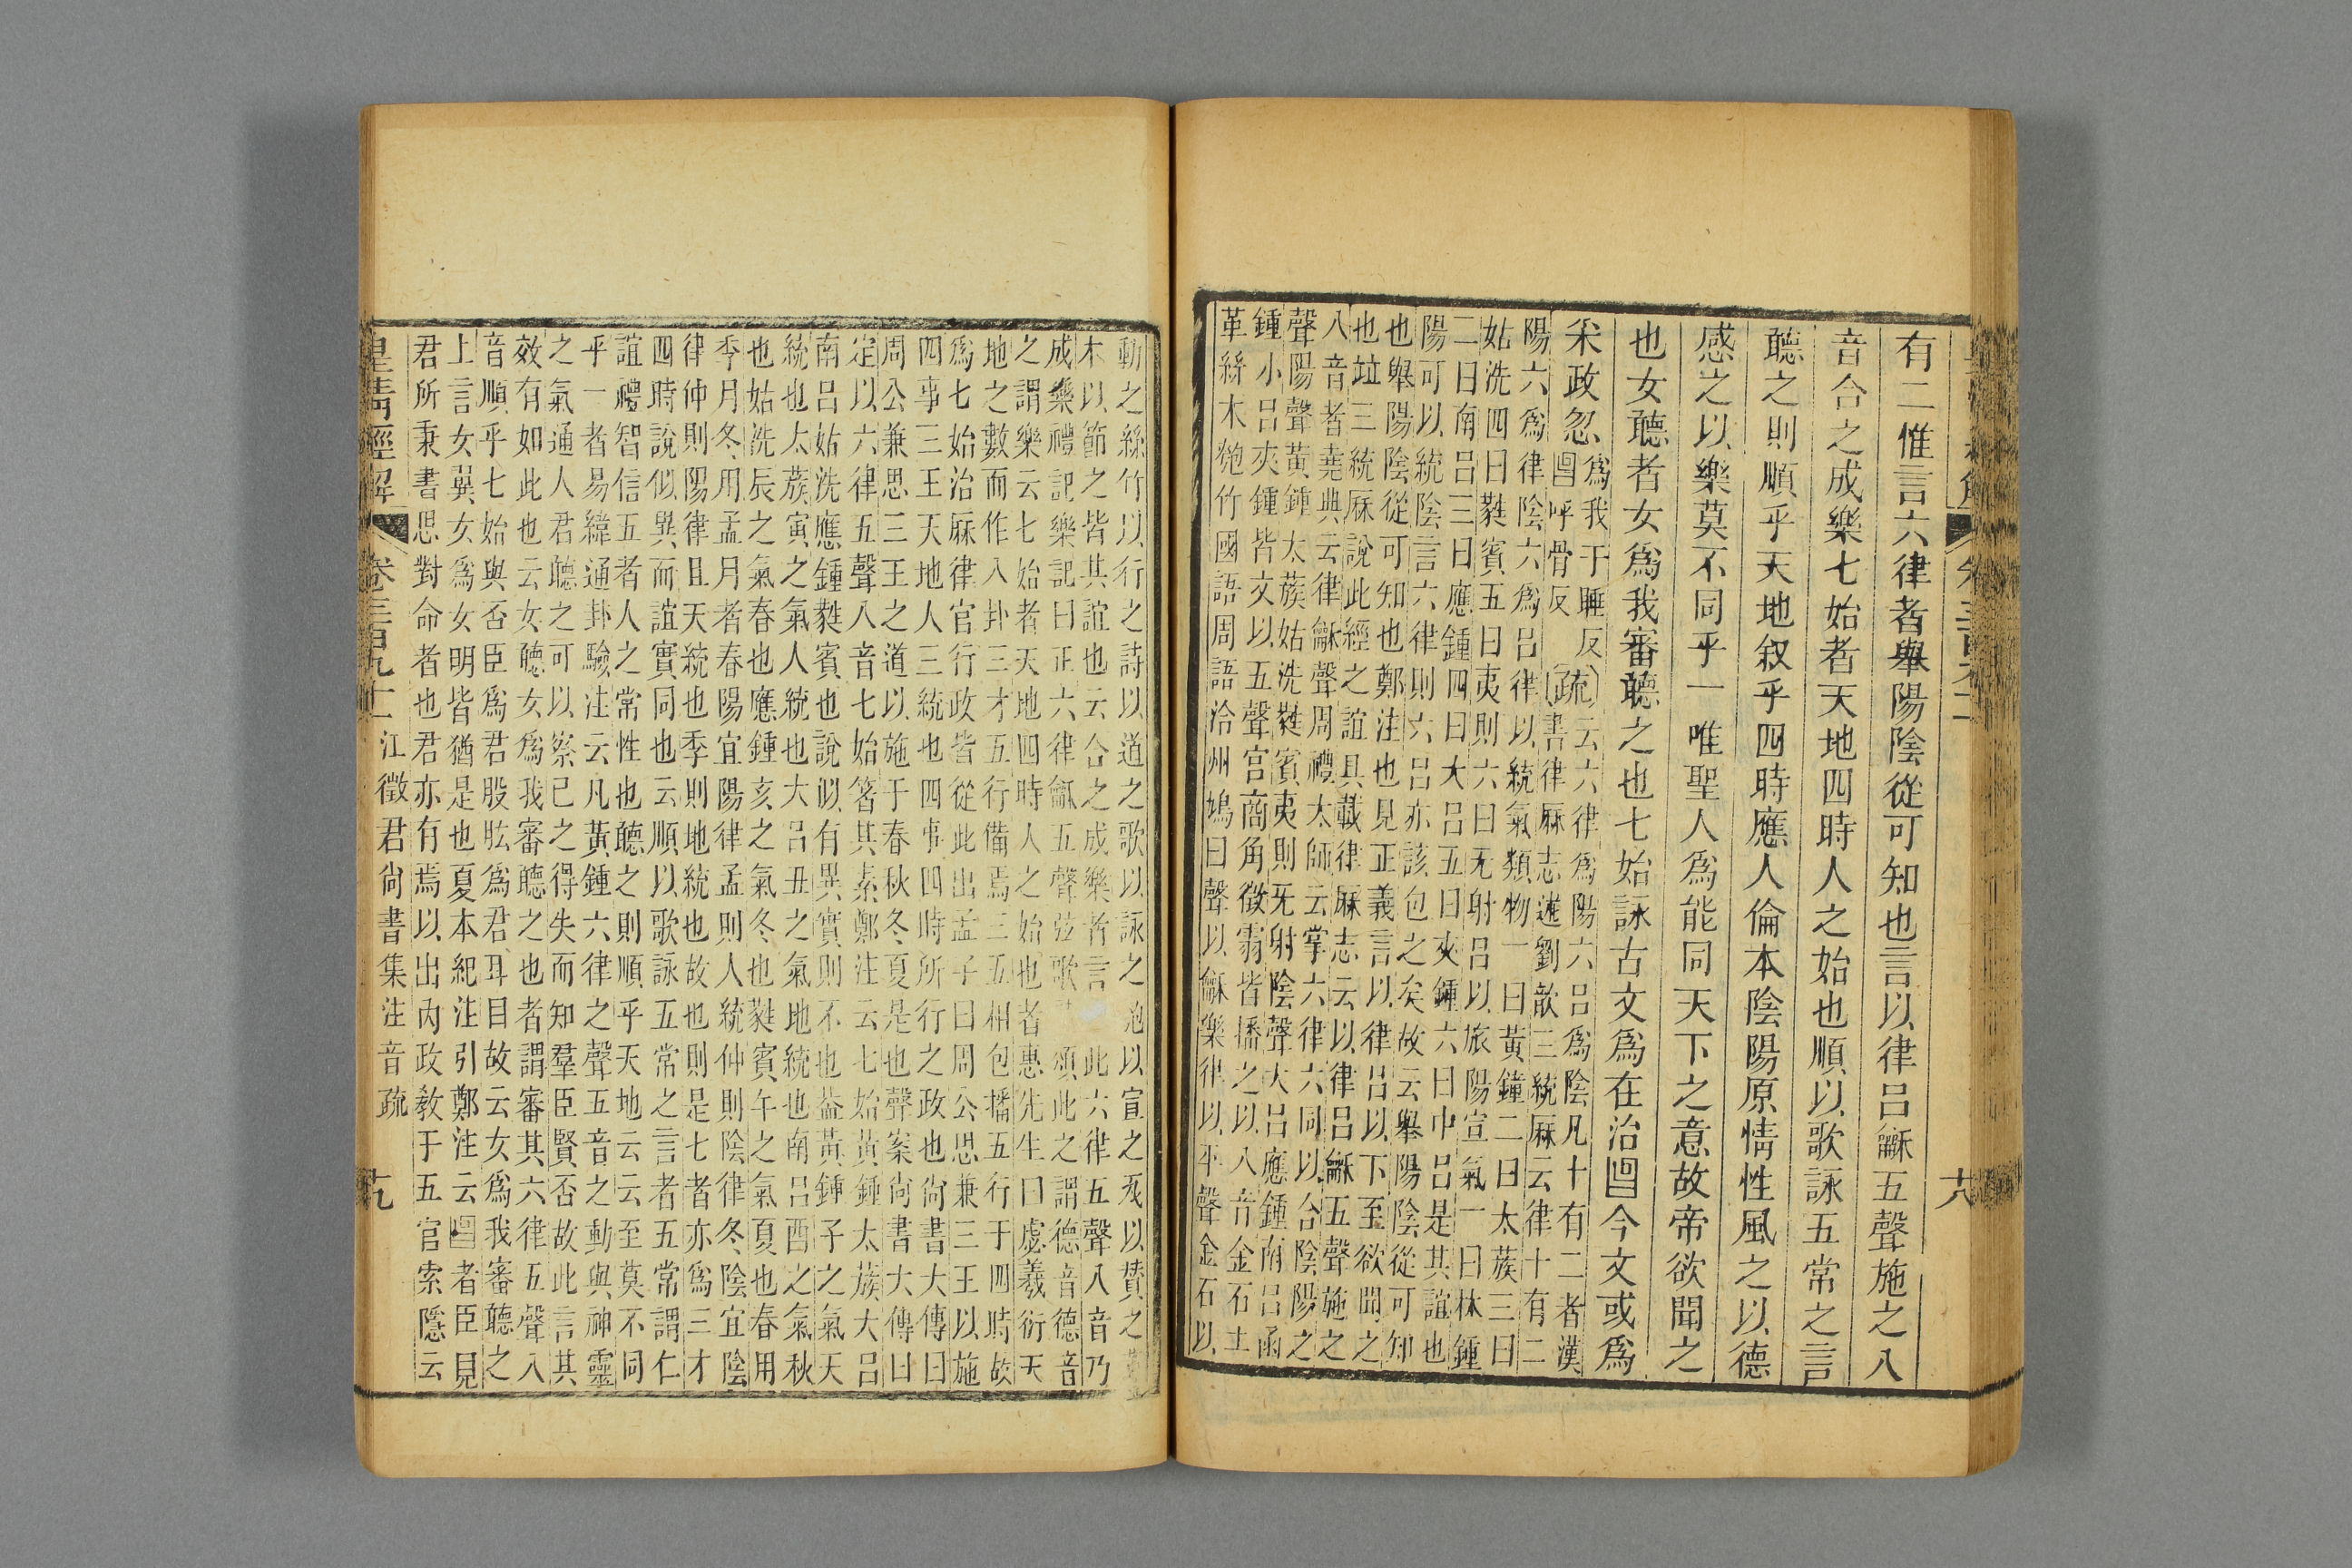 有二惟言六律者舉陽陰從可知也言以律呂龢五聲施之八
音合之成樂七始者天地四時人之始也順以歌詠五常之言
聽之則順乎天地叙乎四時應人倫本陰陽原情性風之以德
感之以樂莫不同乎一唯聖人爲能同天下之意故帝欲聞之
也女聽者女爲我審聽之也七始詠古文爲在治回今文或爲
采政忽
爲我于睡反疏云六律爲陽六呂爲陰凡十有二者漢
回呼骨反書律厤志述劉歆三統厤云律十有二
陽六爲律陰六爲呂律以統氣類物一曰黃鐘二曰太蔟三曰
姑洗四曰蕤賓五曰夷則六曰无射呂以旅陽宣氣一曰林鍾
二曰南呂三曰應鍾四曰大呂五曰夾鍾六曰中呂是其誼也
陽可以統陰言六律則六呂亦該包之矣故云舉陽陰從可知
也舉陽陰從可知也鄭注也見正義言以律呂以下至欲聞之
也竝三統厤說此經之誼具載律厤志云以律呂龢五聲施之
八音者堯典云律龢聲周禮太師云掌六律六同以合陰陽之
聲陽聲黃鍾太蔟姑洗蕤賓夷則无射陰聲大呂應鍾南呂函
鍾小呂夾鍾皆文以五聲宮商角徵羽皆播之以八音金石土
革絲木匏竹國語周語泠州鳩曰聲以龢樂律以平聲金石以
動之絲竹以行之詩以道之歌以詠之匏以宣之瓦以贊之革
木以節之皆其誼也云合之成樂者言此六律五聲八音乃
成樂禮記樂記曰正六律龢五聲弦歌頌此之謂德音德音
之謂樂云七始者天地四時人之始也者惠先生曰虙羲衍天
地之數而作八卦三才五行備焉三五相包播五行于四時故
爲七始治厤律官行政皆從此出孟子曰周公思兼三王以施
四事三王天地人三統也四事四時所行之政也尙書大傳曰
周公兼思三王之道以施于春秋冬夏是也聲案尙書大傳曰
定以六律五聲八音七始箸其素鄭注云七始黃鍾太蔟大呂
南呂姑洗應鍾蕤賓也說似有異實則不也益黃鍾子之氣天
統也太蔟寅之氣人統也大呂丑之氣地統也南呂酉之氣秋
也姑洗辰之氣春也應鍾亥之氣冬也蕤賓午之氣夏也春用
季月冬用孟月者春陽宜陽律孟則人統仲則陰律冬陰宜陰
律仲則陽律且天統也季則地統也故也則是七者亦爲三才
四時說似異而誼實同也云順以歌詠五常之言者五常謂仁
誼禮智信五者人之常性也聽之則順乎天地云云至莫不同
乎一者易緯通卦驗注云凡黃鍾六律之聲五音之動與神靈
之氣通人君聽之可以察已之得失而知羣臣賢否故此言其
效有如此也云女聽女爲我審聽之也者謂審其六律五聲八
音順乎七始與否臣爲君股肱爲君耳目故云女爲我審聽之
上言女翼女爲女明皆猶是也夏本紀注引鄭注云回者臣見
君所秉書思對命者也君亦有焉以出內政教于五官索隱云
皇淸經解 卷三百九十一 江徵君尙書集注音疏 十九